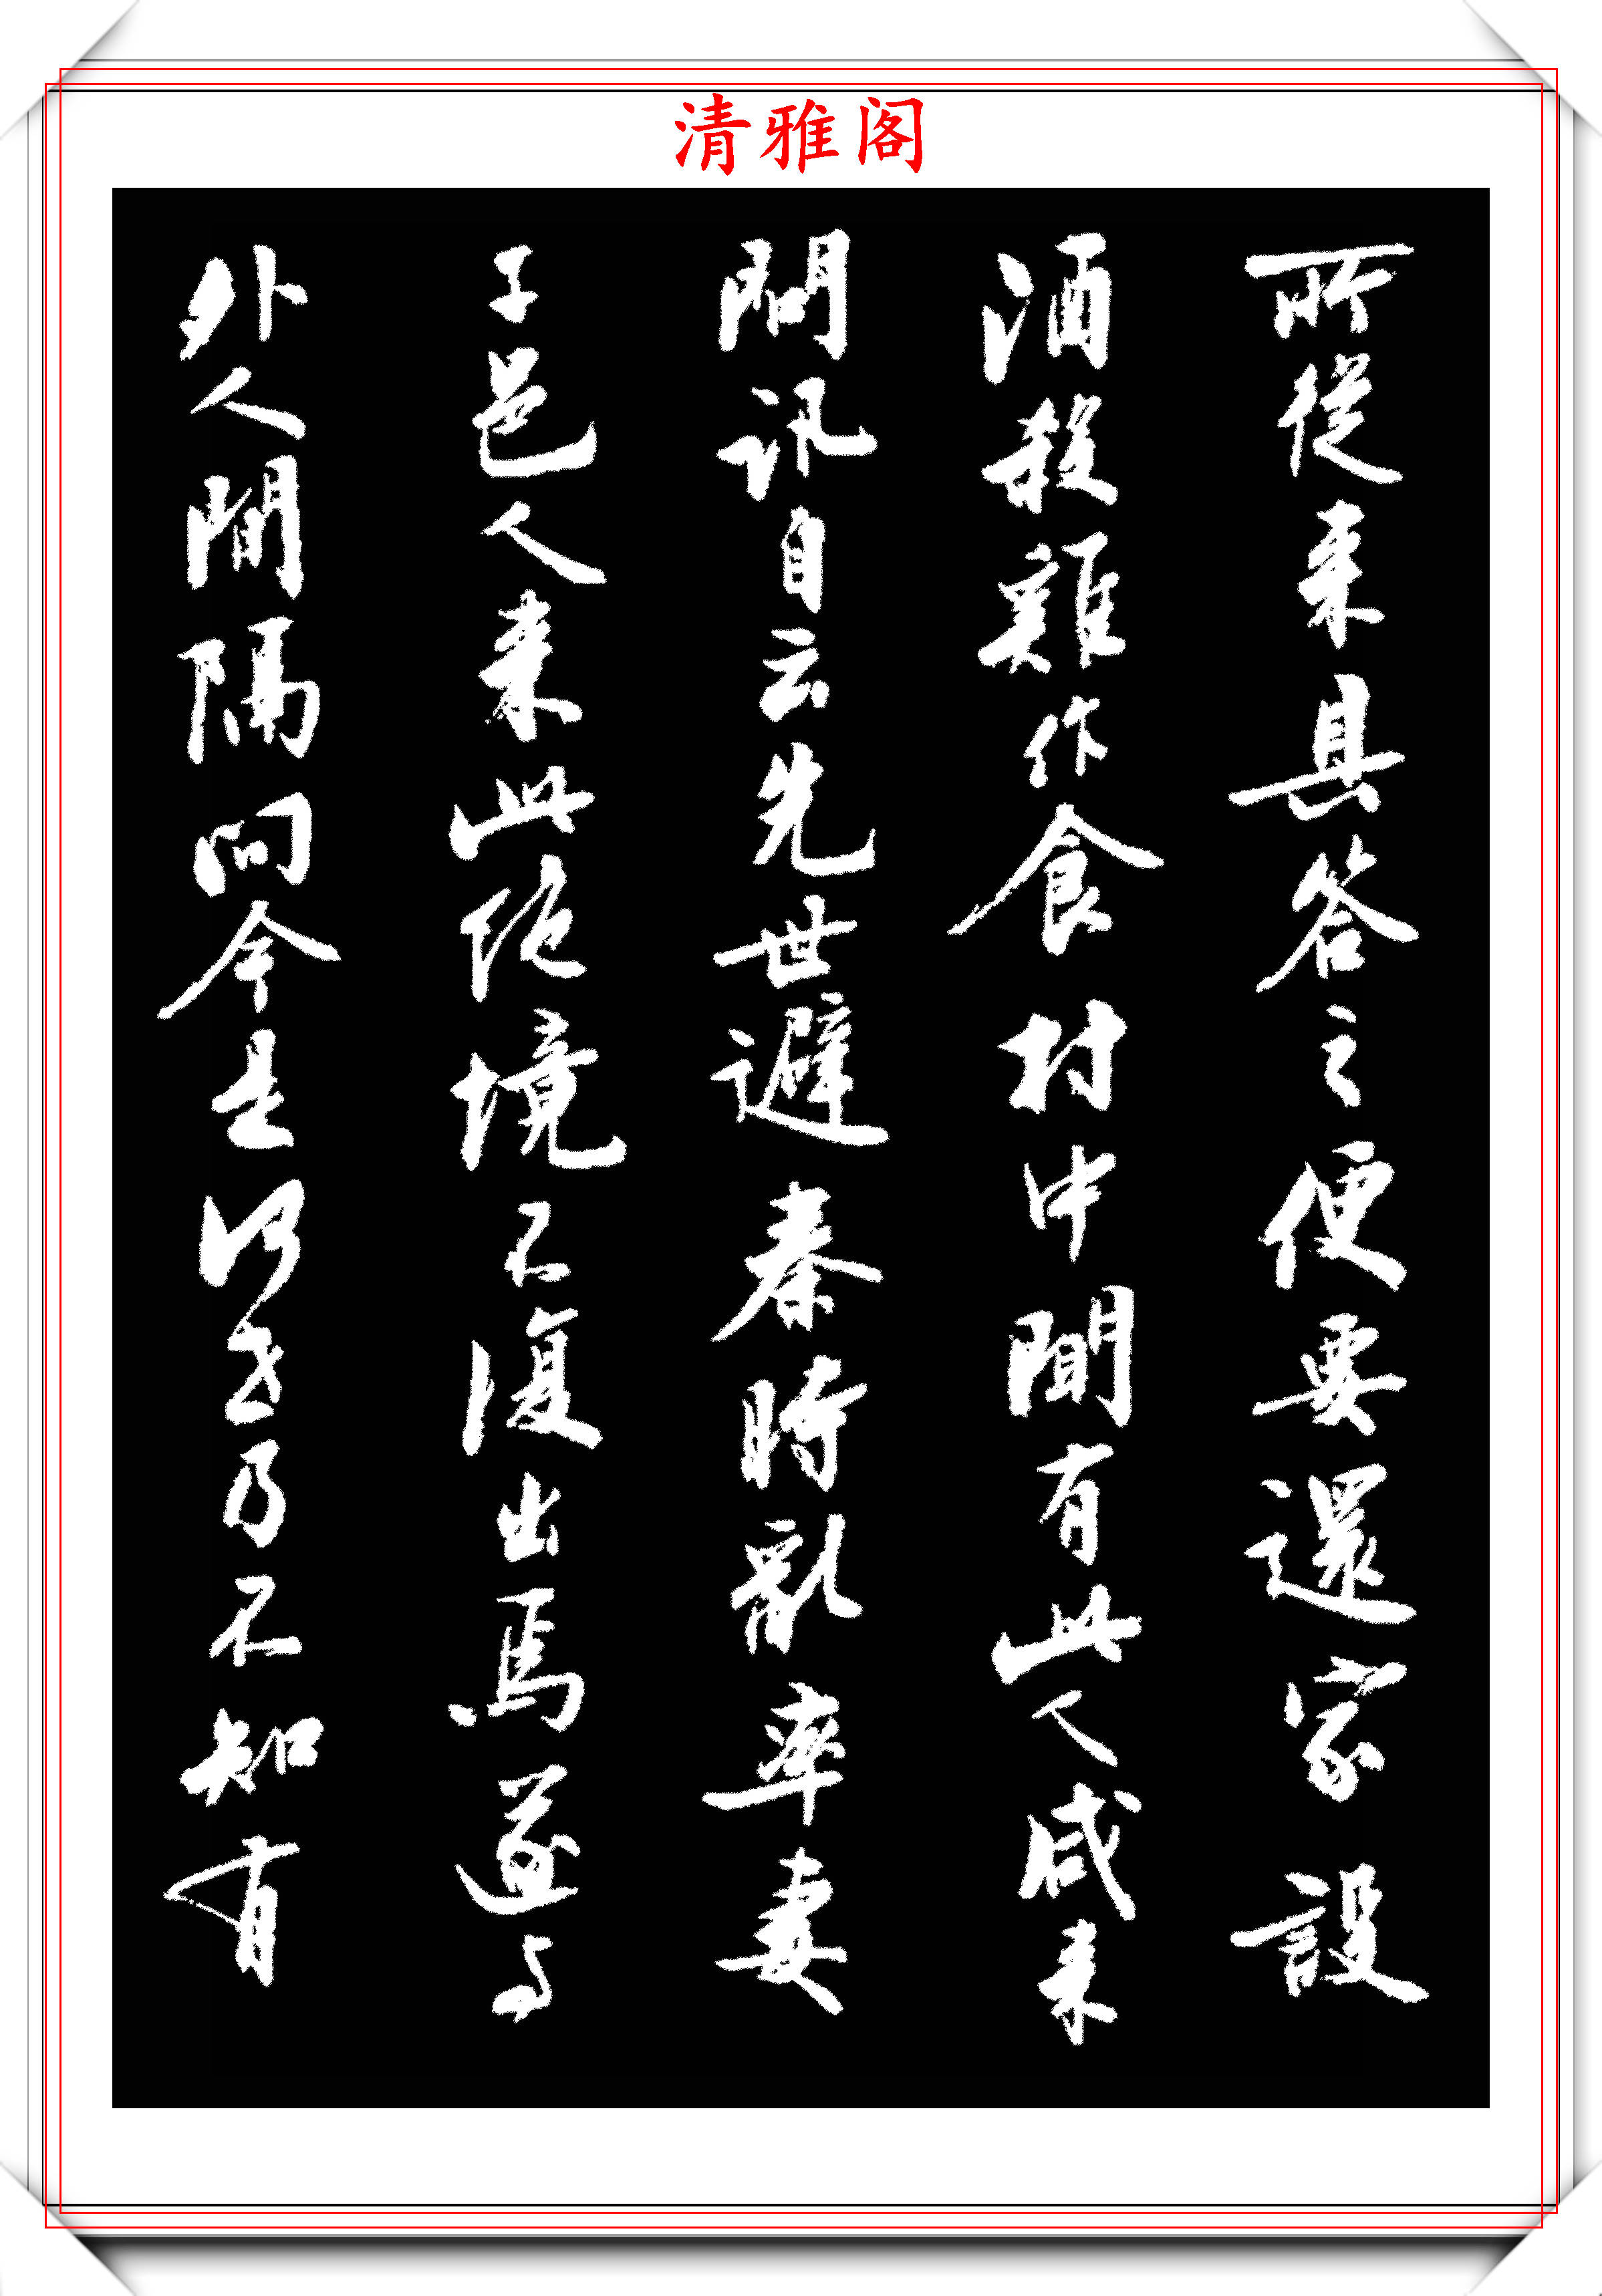 清雅阁
所從来具答之便要還家設
酒殺雞作食村中聞有此人咸来
問訊自云先世避秦時亂率妻
子邑人来此絕境不復出焉遂与
外人間隔問今是何世乃不知有